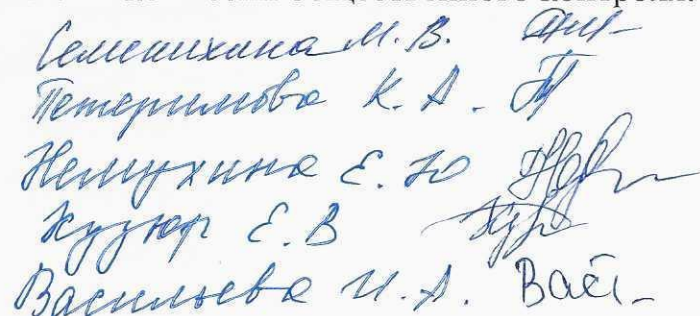 контроля.
Семенихина М. В.
Петеримова К. А.
Немухина Е. Ю
Кузюр Е. В
Васильева И. А. Вас